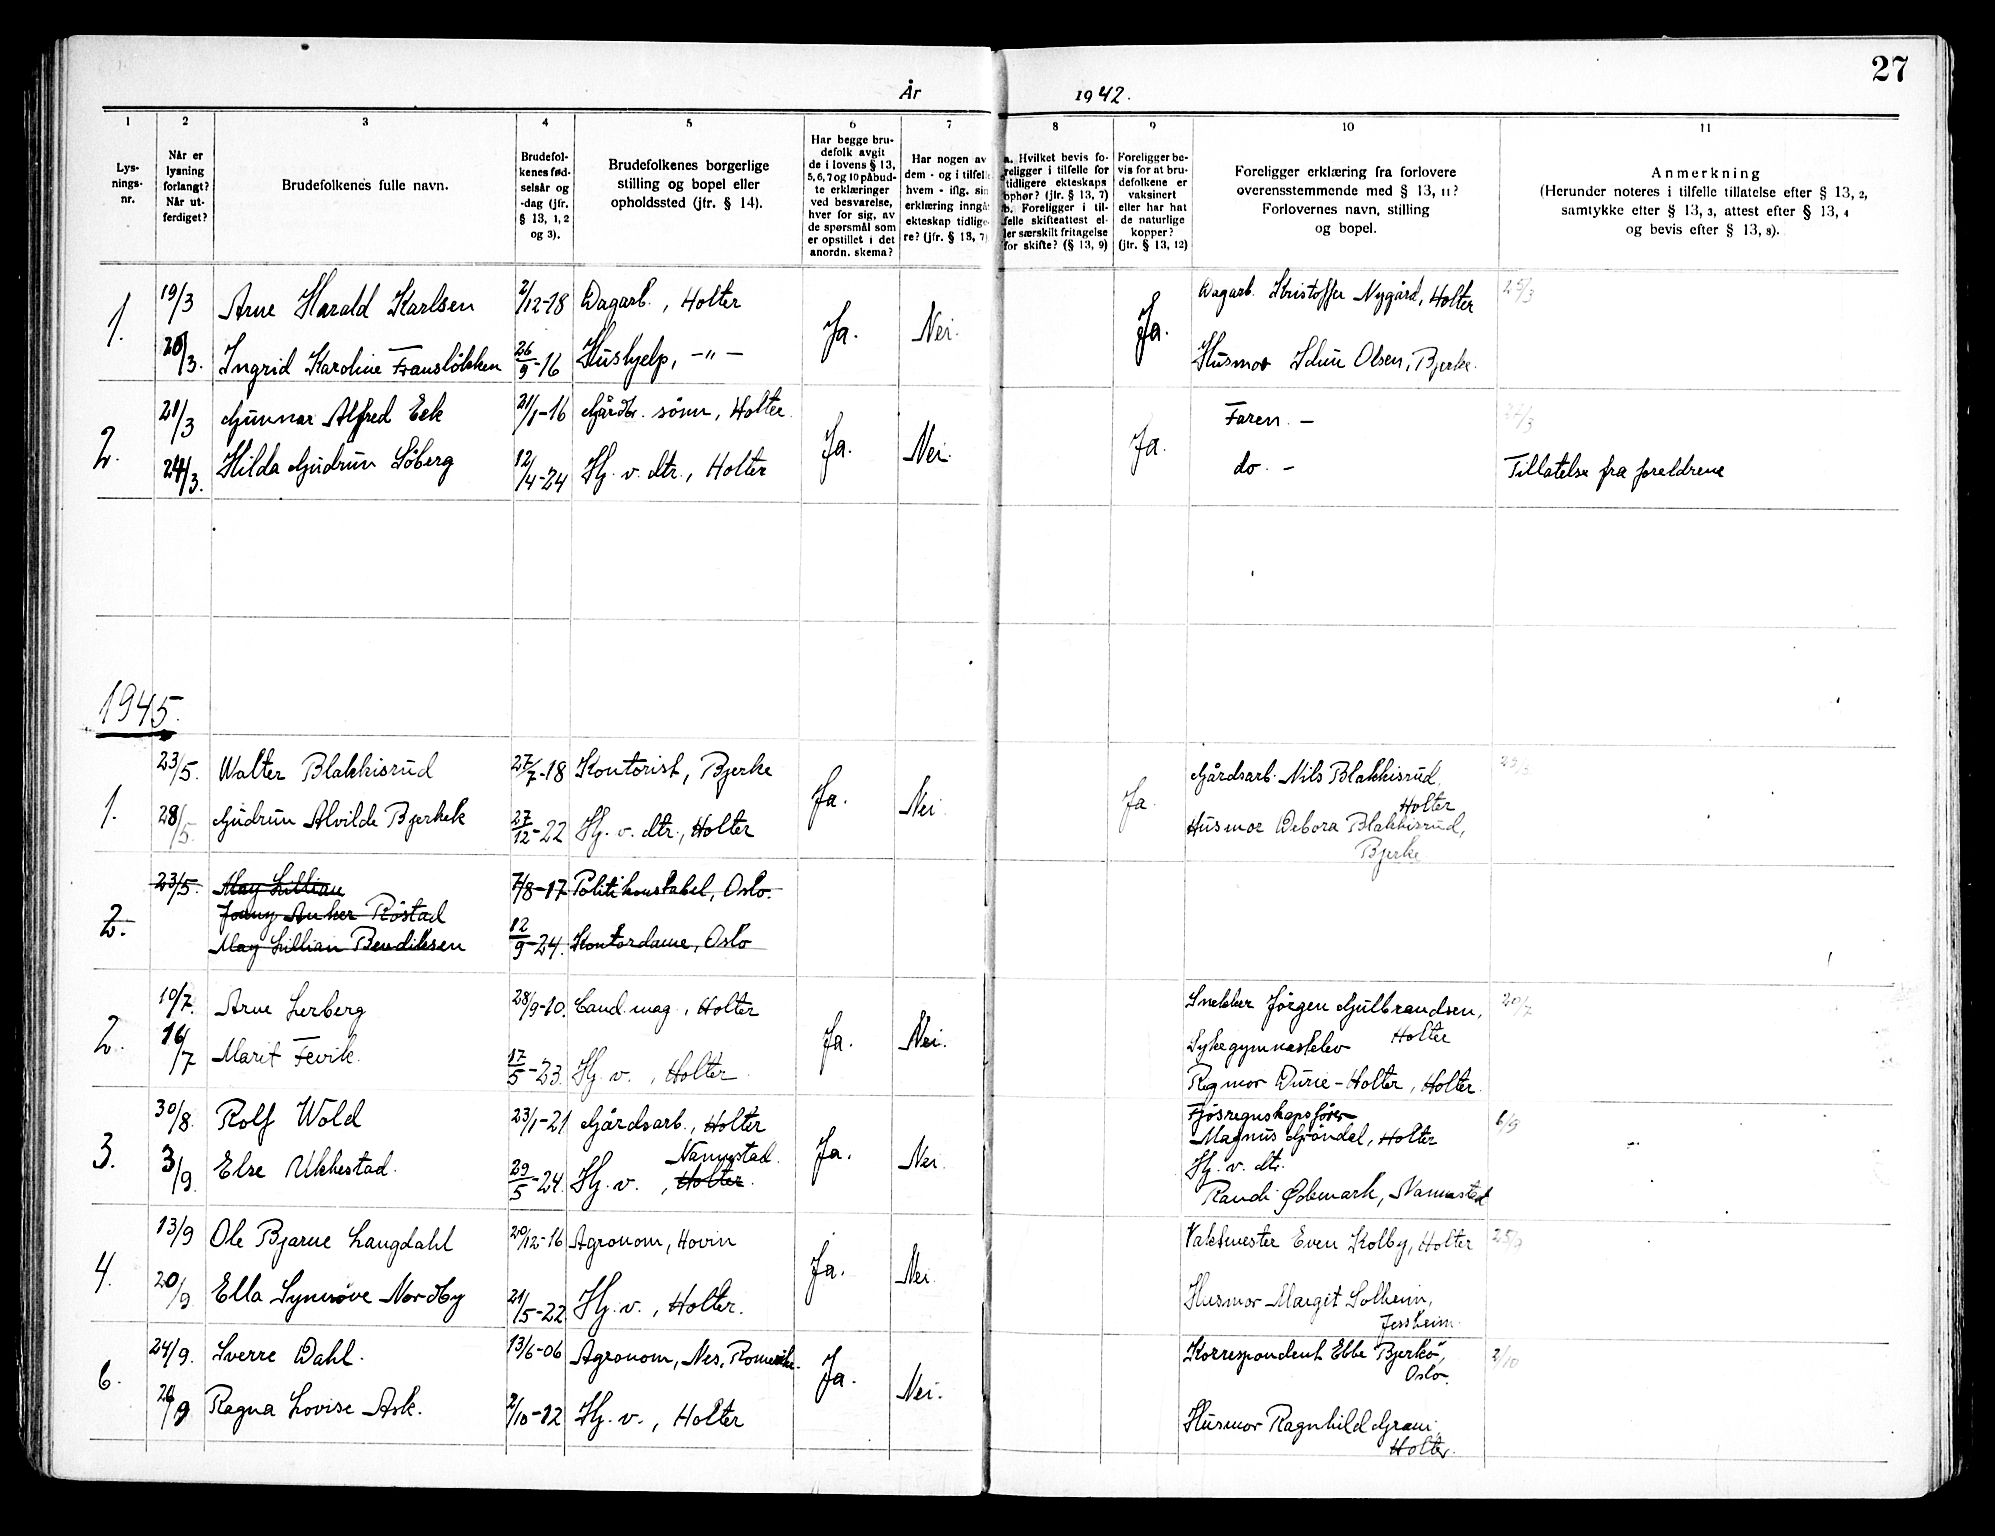 27
År 1942.
1 2 3 4 5 6 7 8 9 10 11
Lys-
nings-
nr.
Når er
lysning
forlangt?
Når ut-
ferdiget?
Brudefolkenes fulle navn.
Brudefol-
kenes fød-
selsår og
-dag (jfr.
§ 13, 1, 2
og 3).
Brudefolkenes borgerlige
stilling og bopel eller
opholdssted (jfr. § 14).
Har begge bru-
defolk avgit
de i lovens § 13,
5, 6, 7 og 10 påbud-
te erklæringer
ved besvarelse,
hver for sig, av
de spørsmål som
er opstillet i det
anordn. skema?
Har nogen av
dem - og i tilfelle
hvem - iflg. sin
erklæring inngå
ekteskap tidlige-
re? (jfr. § 13, 7)
a. Hvilket bevis fo-
religger i tilfelle for
tidligere ekteskaps
ophør? (jfr. § 13, 7)
b. Foreligger i til-
felle skifteattest el-
ler særskilt fritagelse
for skifte? (§ 13, 9)
Foreligger be-
vis for at bru-
defolkene er
vaksinert
eller har hat
de naturlige
kopper?
(jfr. § 13, 12)
Foreligger erklæring fra forlovere
overensstemmende med § 13, 11?
Forlovernes navn, stilling
og bopel.
Anmerkning
(Herunder noteres i tilfelle tillatelse efter § 13, 2,
samtykke etter § 13, 3, attest efter § 13, 4
og bevis efter § 13, 8).
1. 19/3 Arne Harald Karlsen 2/12-18 Dagarb., Holter Ja. Nei. Ja. Dagarb. Kristoffer Nygård, Holter 25/3
20/3. Ingrid Karoline Fransløkken 26/9-16 Hushjelp, -"- Husmor Idun Olsen, Bjerke.
2. 21/3 Gunnar Alfred Eek 21/1-16 Gårdbr. sønn, Holter. Ja. Nei. Ja. Faren. - 27/3
24/3. Hilda Gudrun Söberg 12/4-24 Hj. v. dtr., Holter do. - Tillatelse fra foreldrene
1945.
1. 23/5. Walter Blakkisrud 27/7-18 Kontorist, Bjerke Ja. Nei. Ja. Gårdsarb. Nils Blakkisrud,
Holter
28/5. Gudrun Alvilde Bjerkek 27/12-22 Hj. v. dtr., Holter Husmor Debora Blakkisrud,
Bjerke
2. 23/5. May Lillian 7/8-17 Politikonstabel, Oslo.
Jonny Anker Röstad
May Lillian Bendiksen 12/9-24. Kontordame, Oslo
2. 10/7. Arne Lerberg 28/9-10. Cand. mag., Holter Ja. Nei. Snekker Jörgen Gulbrandsen, 20/7
Holter
16/7 Marit Fevik. 17/5-23. Hj. v., Holter. Sykegymnastelev
Ragmor Durie-Holter, Holter.
3. 30/8. Rolf Wold 23/1-21 Gårdsarb., Holter Ja. Nei. Fjösregnskapsförer 6/9
Magnus Gröndal, Holter
3/9. Else Ukkestad. 29/5-24. Hj. v., Holter. Nannestad. Hj. v. dtr.
Randi Ødemark, Nannestad
4. 13/9 Ole Bjarne Langdahl 20/12-16 Agronom, Hovin Ja. Nei. Vaktmester Even Kolby, Holter 25/9
20/9 Ella Synnöve Nordby 21/5-22 Hj. v., Holter. Husmor Margit Solheim,
Jessheim.
6. 24/9. Sverre Dahl. 13/6-06 Agronom, Nes, Romerike. Ja. Nei. Korrespondent Ebbe Bjerkö, 2/10
Oslo.
Ragna Lovise Ask. 2/10-12 Hj. v., Holter Husmor Ragnhild Grani,
Holter.